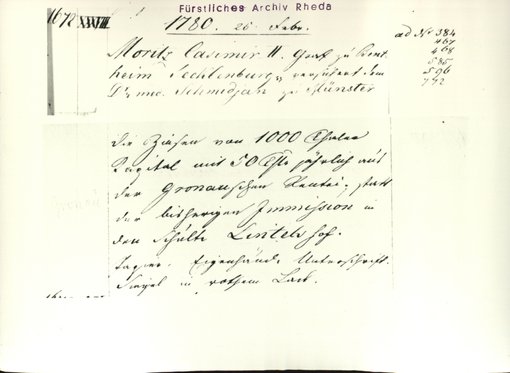 Fürstliches Archiv Rheda
1672 XXVIII.
1780. 26 Febr.
ad No 384
467
468
585
596
772
Moritz Casimir II. Graf zu Bent
heim Tecklenburg, versichert dem
Dr. Schmedjan zu Münster
die Zinsen von 1000 Thaler
Capital mit 50 Thlr jährlich aus
der Gronauschen Rentei, statt
der bisherigen Immission in
den Schulte Lintels hof.
Papier. Eigenhänd. Unterschrift.
Siegel in rothem Lack.